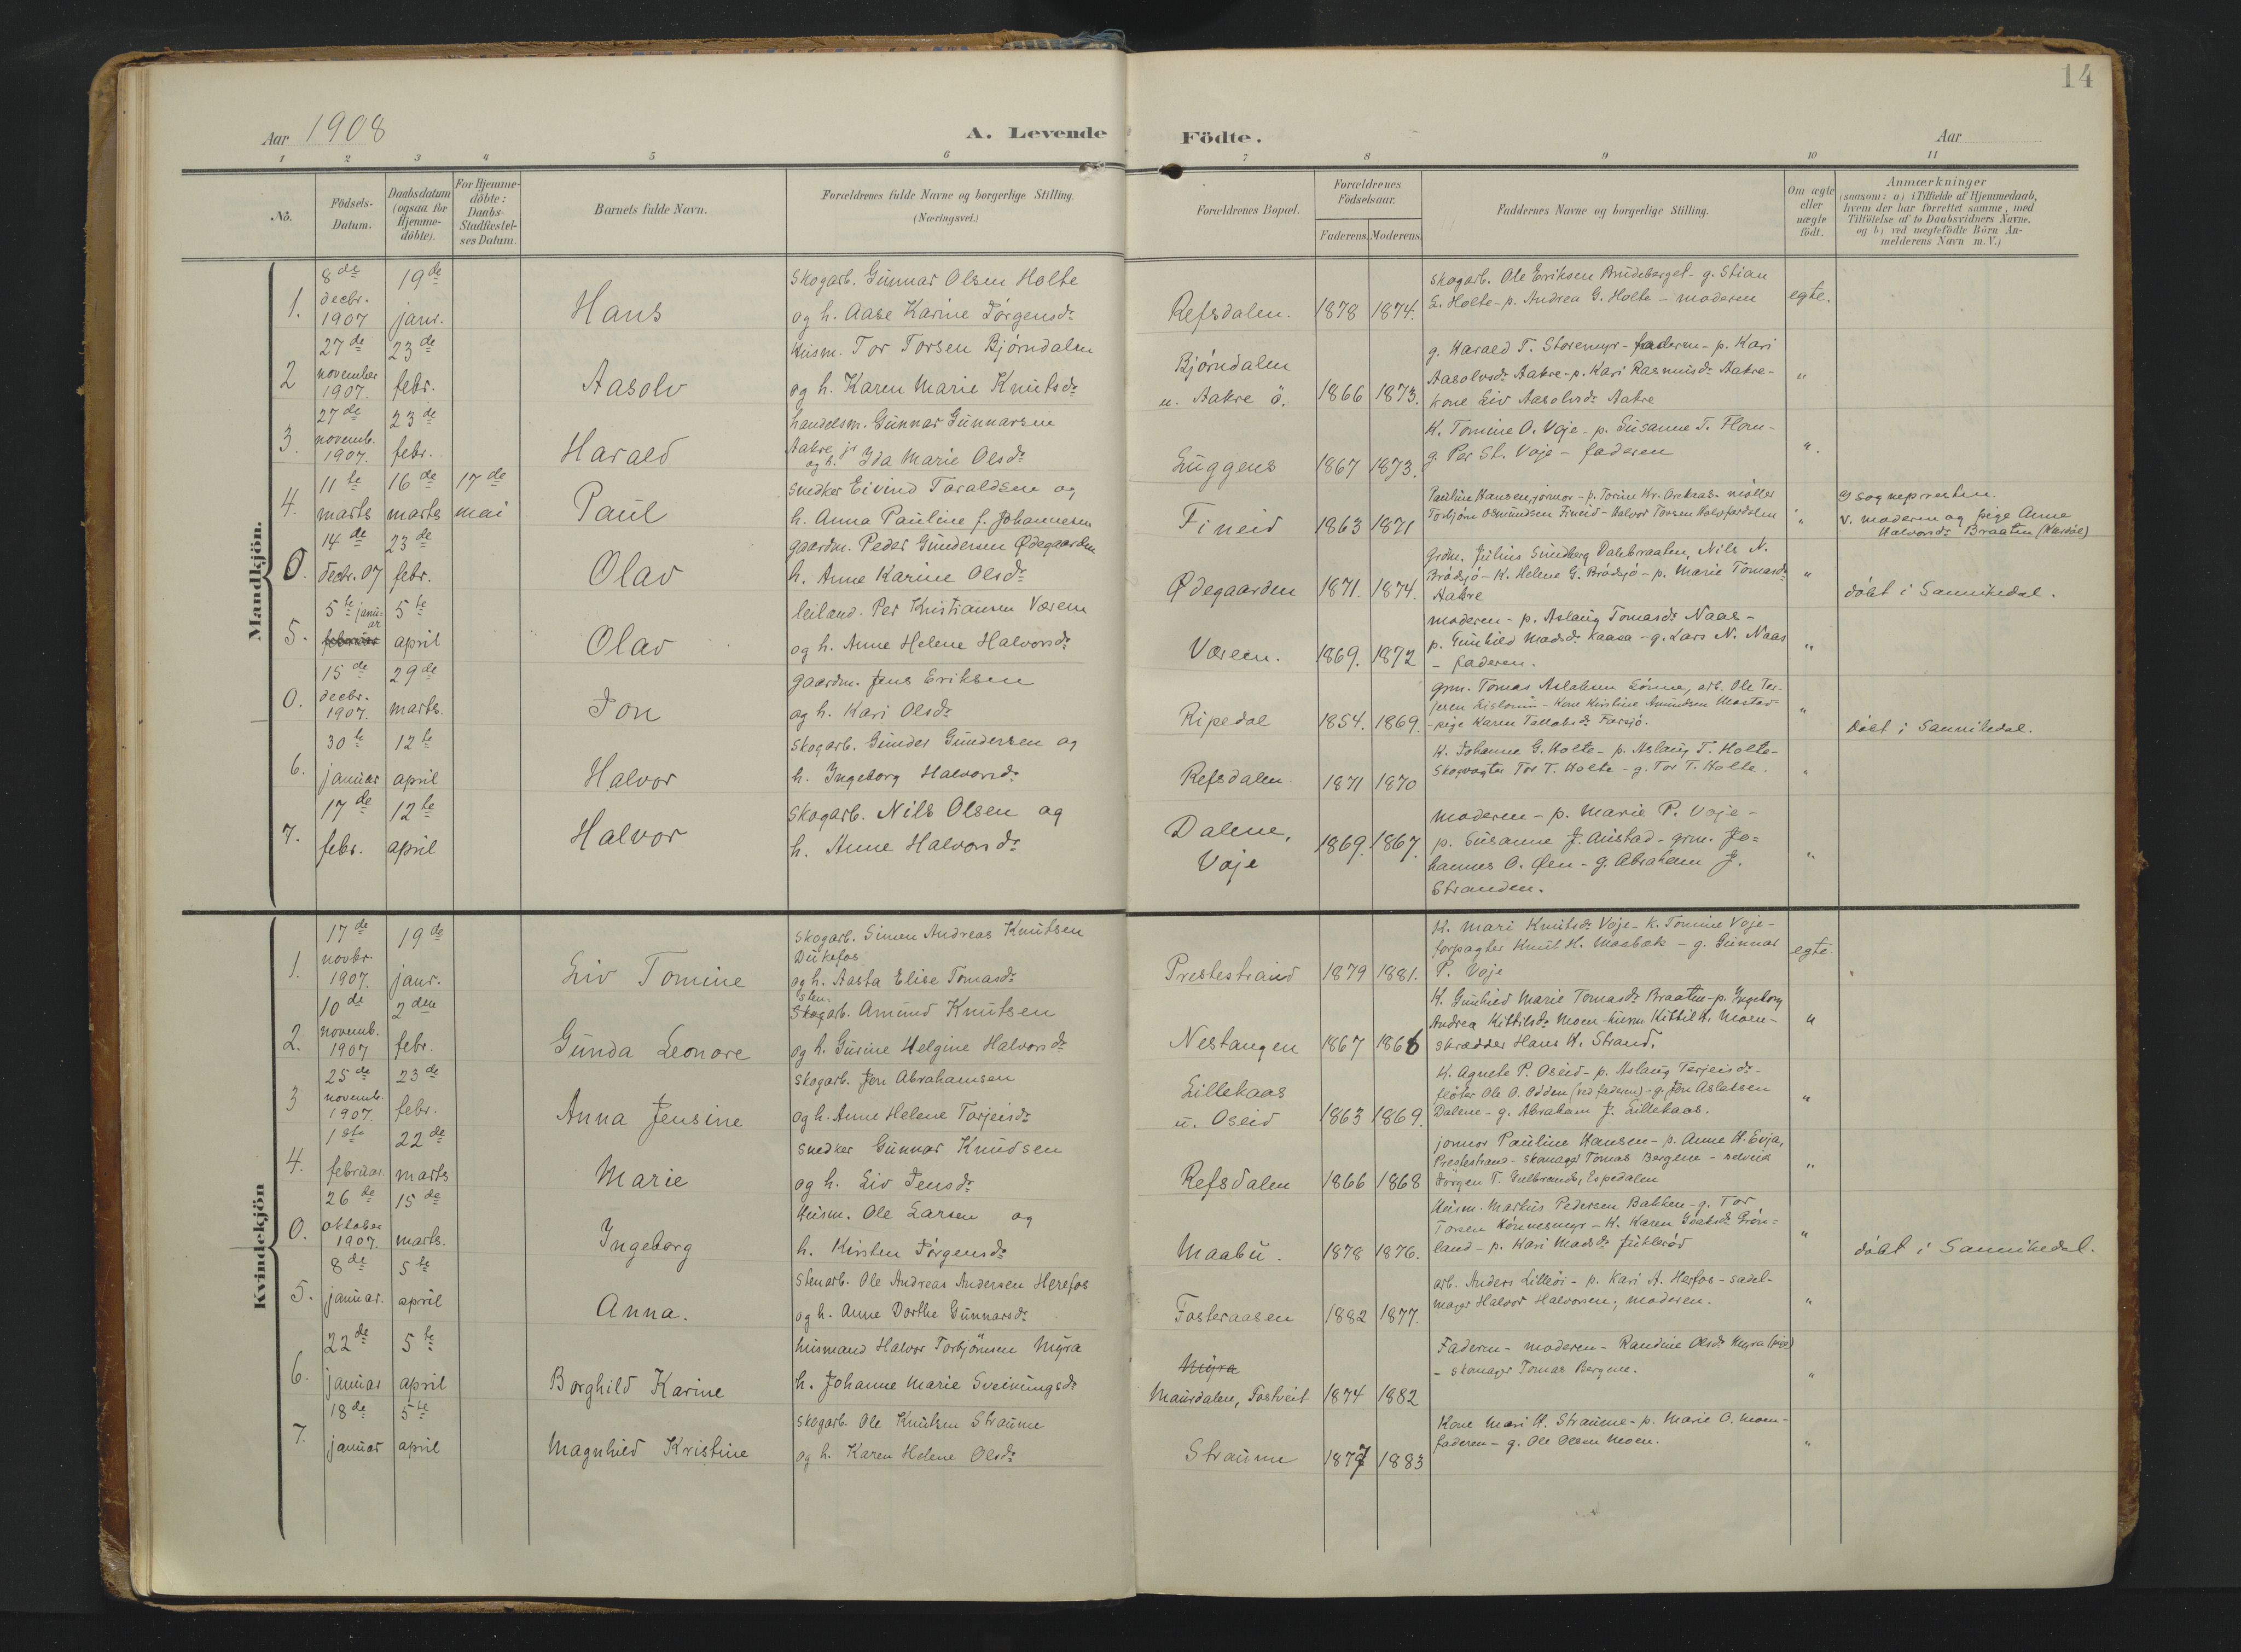 14
Aar 1908
A. Levende Födte.
Aar
1 2 3 4 5 6 7 8 9 10 11
No.
Födsels-
Datum.
Daabsdatum
(ogsaa for
Hjemme-
döbte).
For Hjemme-
döbte:
Daabs-
Stadfæstel-
ses Datum.
Barnets fulde Navn.
Forældrenes fulde Navne og borgerlige Stilling.
(Næringsvei.)
Forældrenes Bopæl.
Forældrenes
Födselsaar.
Faderens. Moderens.
Faddernes Navne og borgerlige Stilling.
Om ægte
eller
uægte
födt.
Anmærkninger
(saasom: a) i Tilfælde af Hjemmedaab,
hvem der har forrettet samme, med
Tilföielse af to Daabsvidners Navne.
og b) ved uægtefödte Börn An-
melderens Navn m. V.)
Mandkjön.
1.
8de
decbr.
1907
19de
janr.
Hans
Skogarb. Gunnar Olsen Holte
og h. Aase Karine Jörgensdr
Refsdalen.
1878 1874.
Skogarb. Ole Eriksen Brudeberget - g. Stian
E. Holte - p. Andrea G. Holte - moderen
egte.
2
27de
november
1907.
23de
febr.
Aasolv
Husm. Tor Torsen Bjørndalen
og h. Karen Marie Knutsdr
Bjørndalen
u. Aakre ö.
1866 1873.
g. Harald T. Storemyr - faderen - p. Kari
Aasolvsdr Aakre - p. Kari Rasmusdr Aakre -
kone Liv Aasolvsdr Aakre
"
3.
27de
novemb.
1907.
23de
febr.
Harald
handelsm. Gunnar Gunnarsen
Aakre jr
og h. Ida Marie Olsdr
Luggens
1867 1873.
K. Tomine O. Vaje - p. Susanne T. Flom -
g. Per St. Vaje - faderen
"
4.
11te
marts
16de
marts
17de
mai
Paul
snedker Eivind Taraldsen og
h. Anna Pauline f. Johannesen
Fineid
1863 1871
Pauline Hansen, jormor - p. Torine Kr. - møller
Torbjörn Osmundsen Fineid - Halvor Torsen
"
a) sognepresten.
v. moderen og pige Anne
Halvorsdr Braaten
0.
14de
decbr. 07
23de
febr.
Olav
gaardm. Peder Gundersen Ødegaarden
h. Anne Karine Olsdr
Ødegaarden
1871. 1874.
Grdm. Julius Sundberg Dalebraaten, Nils N.
Brödsjö - K. Helene G. Brödsjö - p. Marie Tomasdr
Aakre
"
döbt i Sannikedal.
5.
5te januar
februar
5te
april
Olav
leiland. Per Kristiansen Væren
og h. Anne Helene Halvorsdr
Væreen.
1869. 1872
moderen - p. Aslaug Tomasdr Naas -
p. Gunhild Madsdr Kaasa - g. Lars N. Naas
- faderen.
"
0.
15de
decbr.
1907.
29de
marts.
Jon
gaardm. Jens Eriksen
og h. Kari Olsdr
Ripedal
1854. 1869.
grm. Tomas Aslaksen Lönne, arb. Ole Ter-
jesen - Kone Kirstine Amundsen
- pige Karen Farsjö.
"
döbt i Sannikedal.
6.
30te
januar
12te
april
Halvor
Skogarb. Gunder Gundersen og
h. Ingeborg Halvorsdr
Refsdalen
1871 1870
K. Johanne G. Holte - p. Aslaug T. Holte -
Skogvogter Tor T. Holte - g. Tor T. Holte.
"
7.
17de
febr.
12te
april
Halvor
Skogarb. Nils Olsen og
h. Anne Halvorsdr
Dalene,
Vaje
1869. 1867.
moderen - p. Marie P. Vaje -
p. Susanne J. Austad - grm. Jo=
hannes O. Øen - g. Abraham J.
Stranden.
"
Kvindekjön
1.
17de
novbr.
1907.
19de
janr.
Liv Tomine
Skogarb. Simen Andreas Knutsen
Dukefos
og h. Aasta Elise Tomasdr
Prestestrand
1879 1881.
K. Mari Knutsdr Vaje - K. Tomine Vaje -
forpagter Knut H. Maabæk - g. Gunnar
P. Vaje
egte.
2.
10de
novemb.
1907
2den
febr.
Gunda Leonore
Sten
Skogarb. Amund Knutsen
og h. Gurine Helgine Halvorsdr
Nestangen
1867 1866
K. Gunhild Marie Tomasdr Braaten - p. Ingeborg
Andrea Kittilsdr Moen - husm. Kittil H. Moen -
skrædder Hans H. Strand.
"
3
25de
novemb.
1907.
23de
febr.
Anna Jensine
Skogarb. Jon Abrahamsen
og h. Anne Helene Tarjeisdr
Lillekaas
u. Oseid
1863 1869.
K. Agnete P. Oseid - p. Aslaug Terjeisdr -
flöter Ole O. Odden (ved faderen) - g. Jon Aslaksen
Dalene - g. Abraham J. Lillekaas.
"
4.
1ste
februar.
22de
marts
Marie
snedker Gunnar Knudsen
og h. Liv Jensdr
Refsdalen
1866 1868
jormor Pauline Hansen - p. Anne H. Evja,
Prestestrand - skomager Tomas Bergene - selveier
Jörgen T. Gulbrands, Espedalen
"
0.
26de
oktober
1907.
15de
marts.
Ingeborg
Husm. Ole Larsen og
h. Kirsten Jörgensdr
Maabu.
1878 1876.
Husm. Markus Pedersen Bakken - g. Tor
Torsen Könnesmyr - K. Karen Grön=
land - p. Kari Madsdr
"
döbt i Sannikedal.
5.
8de
januar.
5te
april
Anna.
Stenarb. Ole Andreas Andersen Herefos
og h. Anne Dorthe Gunnarsdr
Fosteraasen
1882 1877.
arb. Anders Lilleöi - p. Kari A. Herfos - sadel-
mager Halvor Halvorsen; moderen.
"
6.
22de
januar
5te
april
Borghild Karine
husmand Halvor Torbjörnsen Myra
h. Johanne Marie Sveinungsdr
Myra
Maurdalen, Tostveit
1874 1882
Faderen - moderen - Randine Olsdr Myra (pige)
- skomager Tomas Bergene.
"
7.
18de
januar
5te
april
Magnhild Kristine
skogarb. Ole Knutsen Straume
og h. Karen Helene Olsdr
Straume
1877 1883
Kone Mari H. Straume - p. Marie O. Moen -
faderen - g. Ole Olsen Moen.
"